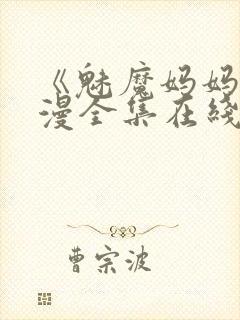 《魅魔妈妈
漫全集在线
曹宗波